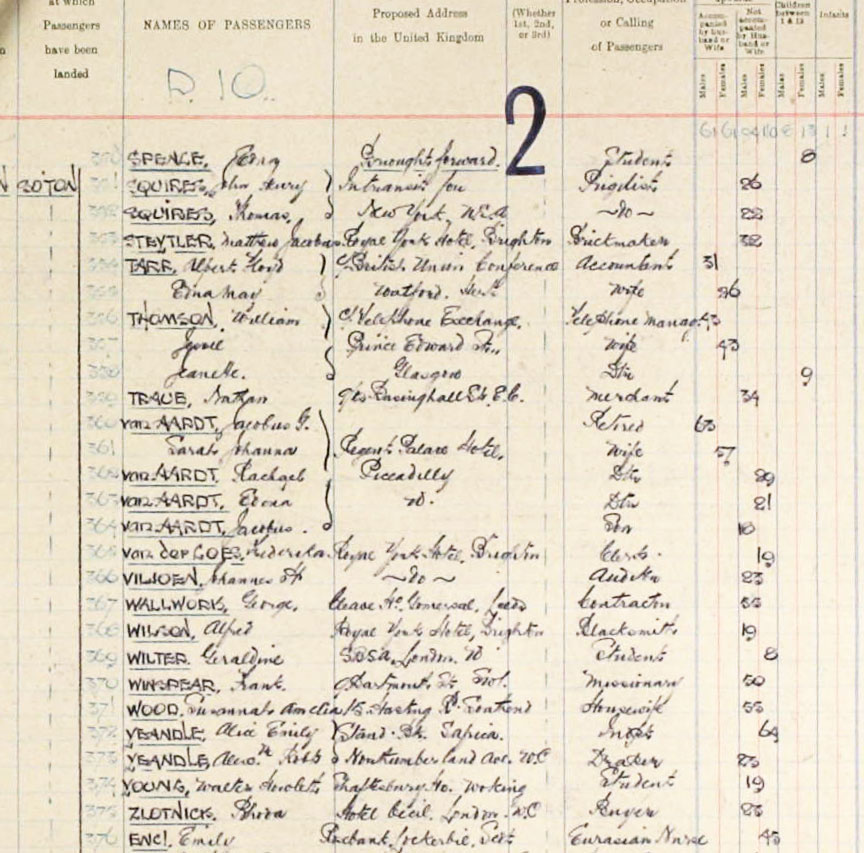 at which
Passengers
have been
landed
NAMES OF PASSENGERS
Proposed Address
in the United Kingdom
(Whether
1st, 2nd,
or 3rd)
Profession, Occupation
or Calling
of Passengers
Accompanied by Husband or Wife
Not accompanied by Husband or Wife
Children between 1 & 12
Infants
Males Females Males Females Males Females Males Females
D. 10.
2
350 SPENCE, Brought forward. Student 8
SO'TON 351 SQUIRES, John Henry In transit for 26
352 SQUIRES, Thomas, New York, U.S.A ~do~ 22
353 STEYTLER, Matthew Jacobus Royal York Hotel, Brighton Brickmaker 32
354 TARR, Albert Floyd C/ British Union Conference Accountant 31
355 Edna May Watford. Herts Wife 26
356 THOMSON, William C/ Telephone Exchange, Telephone Manag.
357 Prince Edward St., Wife 43
358 Jeanette. Glasgow Dtr 9
359 Nathan Basinghall St. E.C. Merchant 34
360 van AARDT, Jacobus G. Retired 63
361 Sarah Johanna Regent Palace Hotel, Wife 57
362 van AARDT, Rachael Piccadilly Dtr 29
363 van AARDT, W. Dtr 21
364 van AARDT, Jacobus. Son 18
365 van der GOES, Frederika Royal York Hotel, Brighton Clerk. 19
366 VILJOEN, Johannes H ~do~ Auditor 23
367 WALLWORK, George, Gomersal, Leeds Contractor 55
368 WILSON, Alfred Royal York Hotel, Brighton Blacksmith 19
369 WILTER, Geraldine SBSA, London. W Student 8
370 WINSPEAR, Frank. Dartmouth St. Missionary 50
371 WOOD, Susannah Amelia 15 Hasting Rd Southend Housewife 55
372 YEANDLE, Alice Emily Stand. Bk. S africa. 64
373 YEANDLE, Robb Northumberland Ave. W.C Draper 23
374 YOUNG, Walter Howlett Shaftesbury Ho. Woking Student 19
375 ZLOTNICK, Rhoda Hotel Cecil, London. W.C Buyer 28
376 Emily Rosebank, Lockerbie, Scot Eurasian Nurse 45